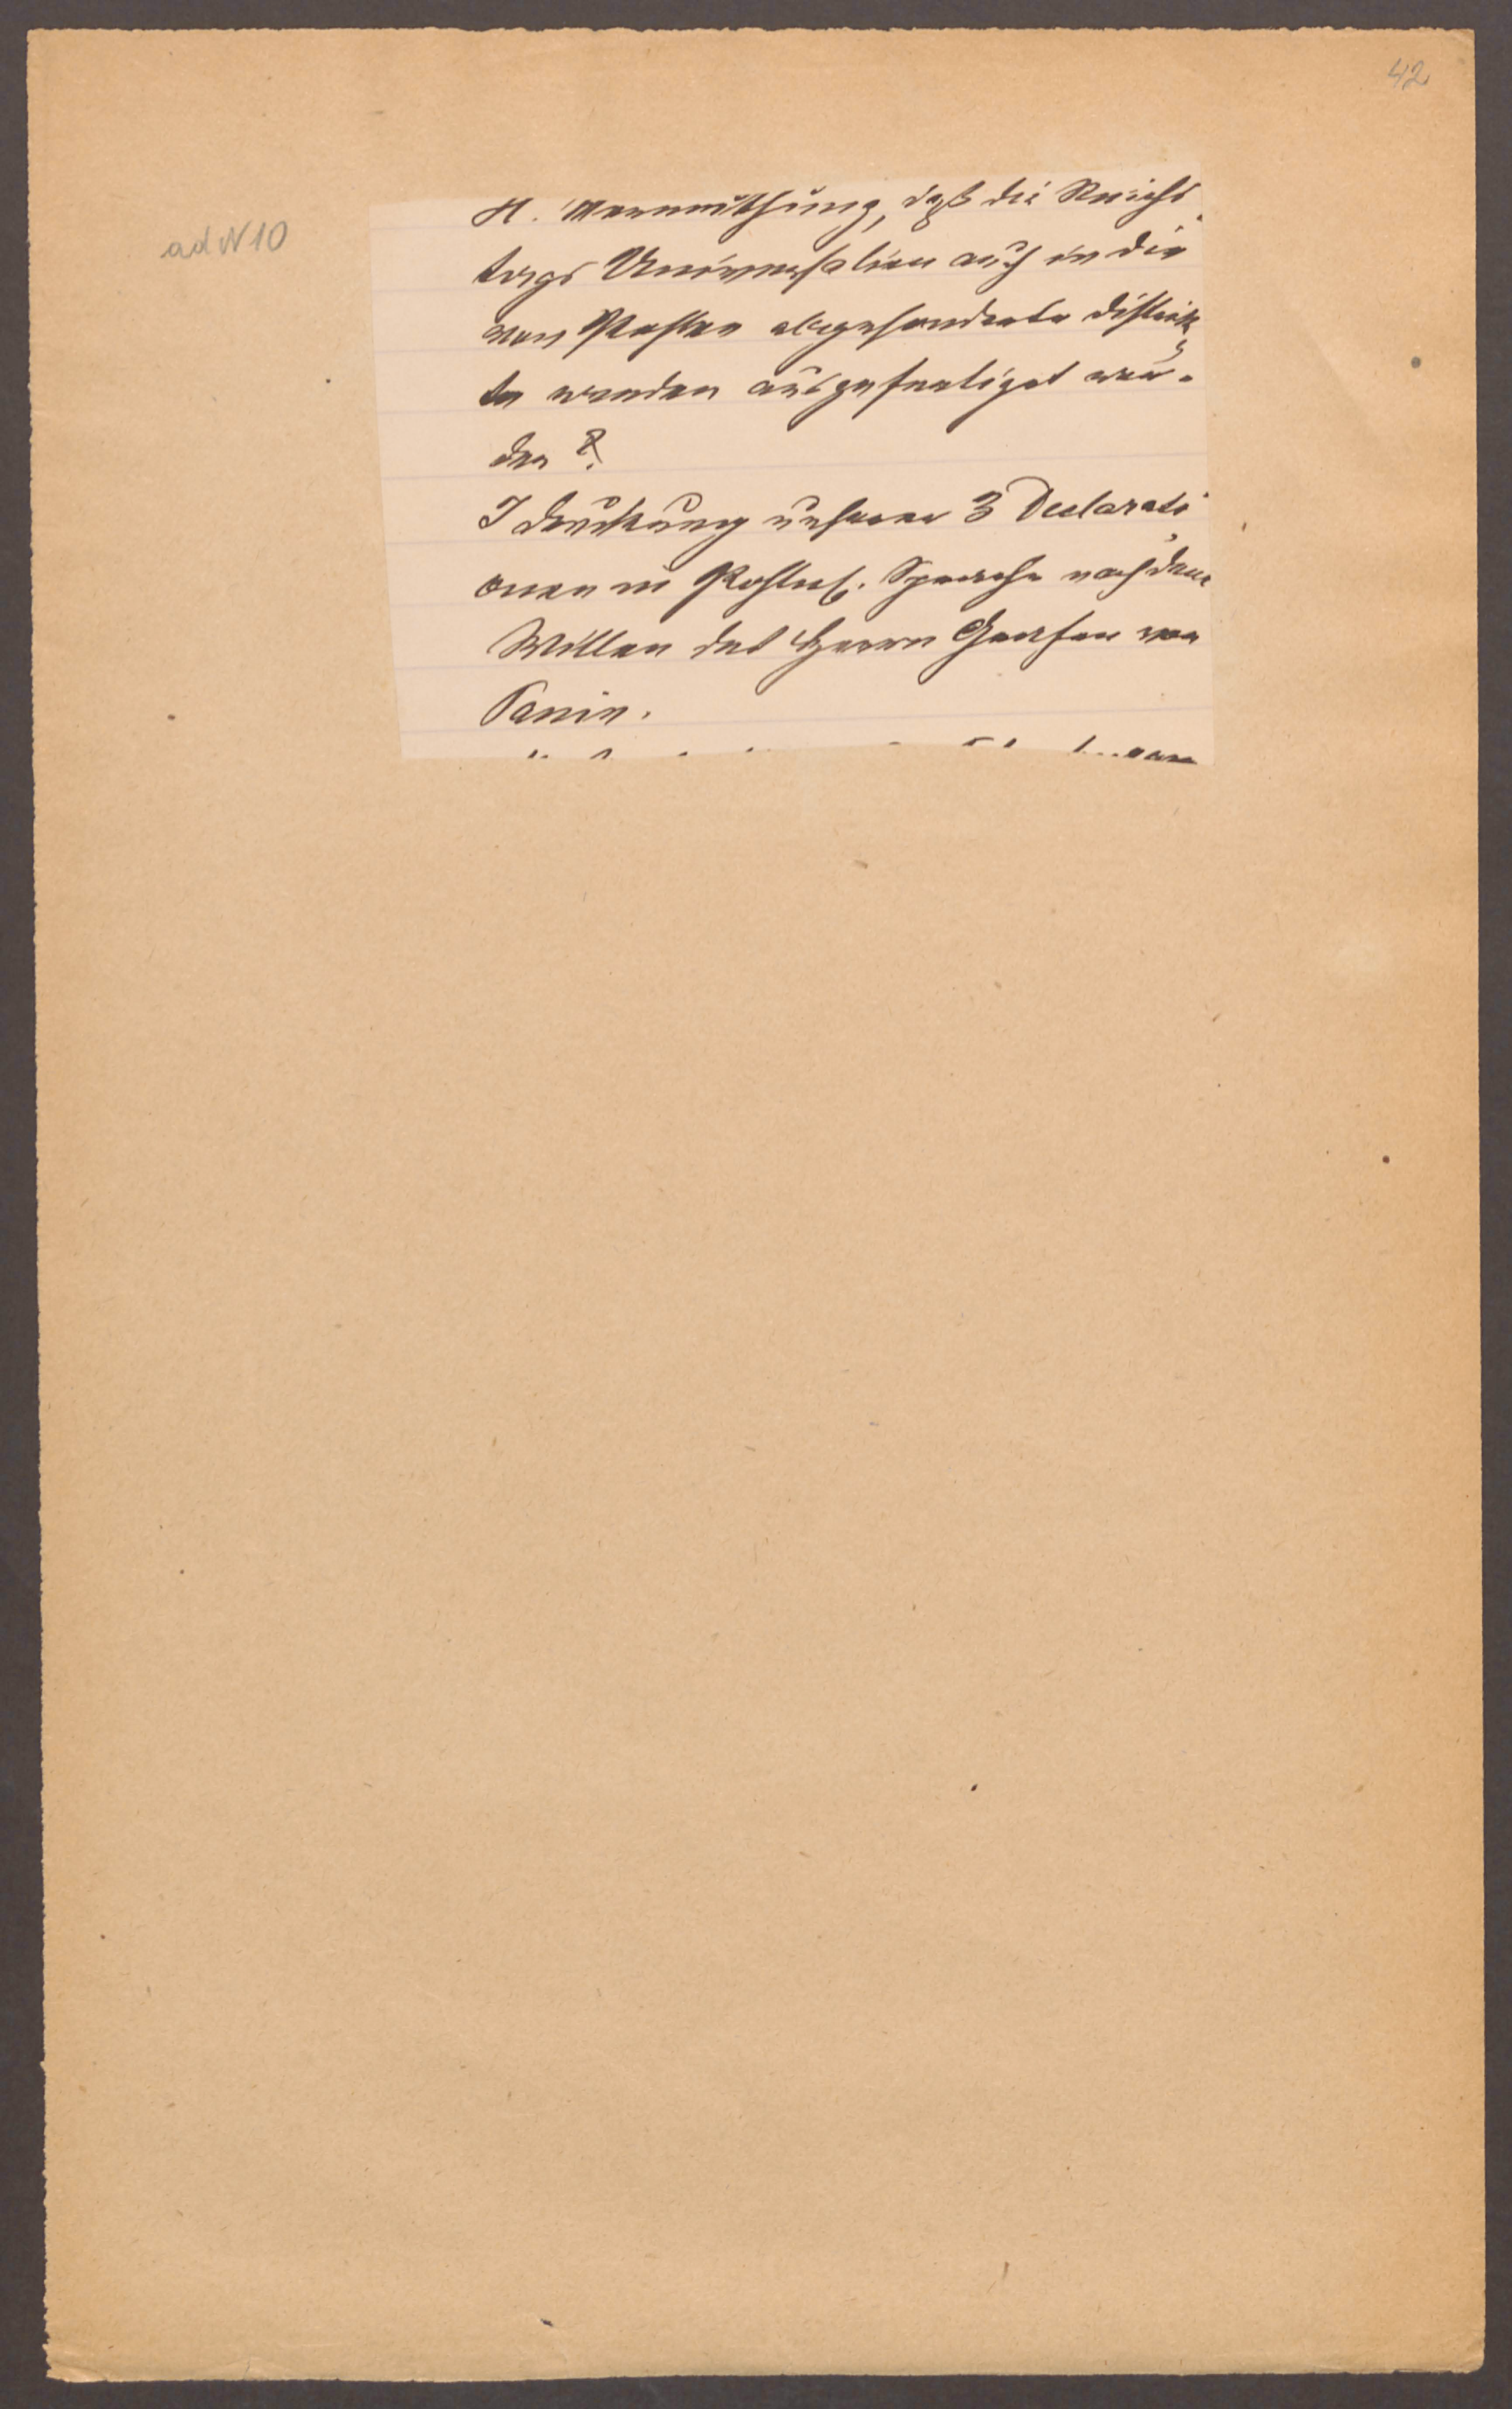 42
ad N 10
H. Vermuthung, daß die Reichs
tags Universalien auch in die
von Pohlen abgesonderte distrik
te werden ausgefertiget wer-
den ?
I druckung unserer 3 Declarati
onen in Pohlnis. Sprache nach dem
Willen des Herrn Grafen von
Panin.